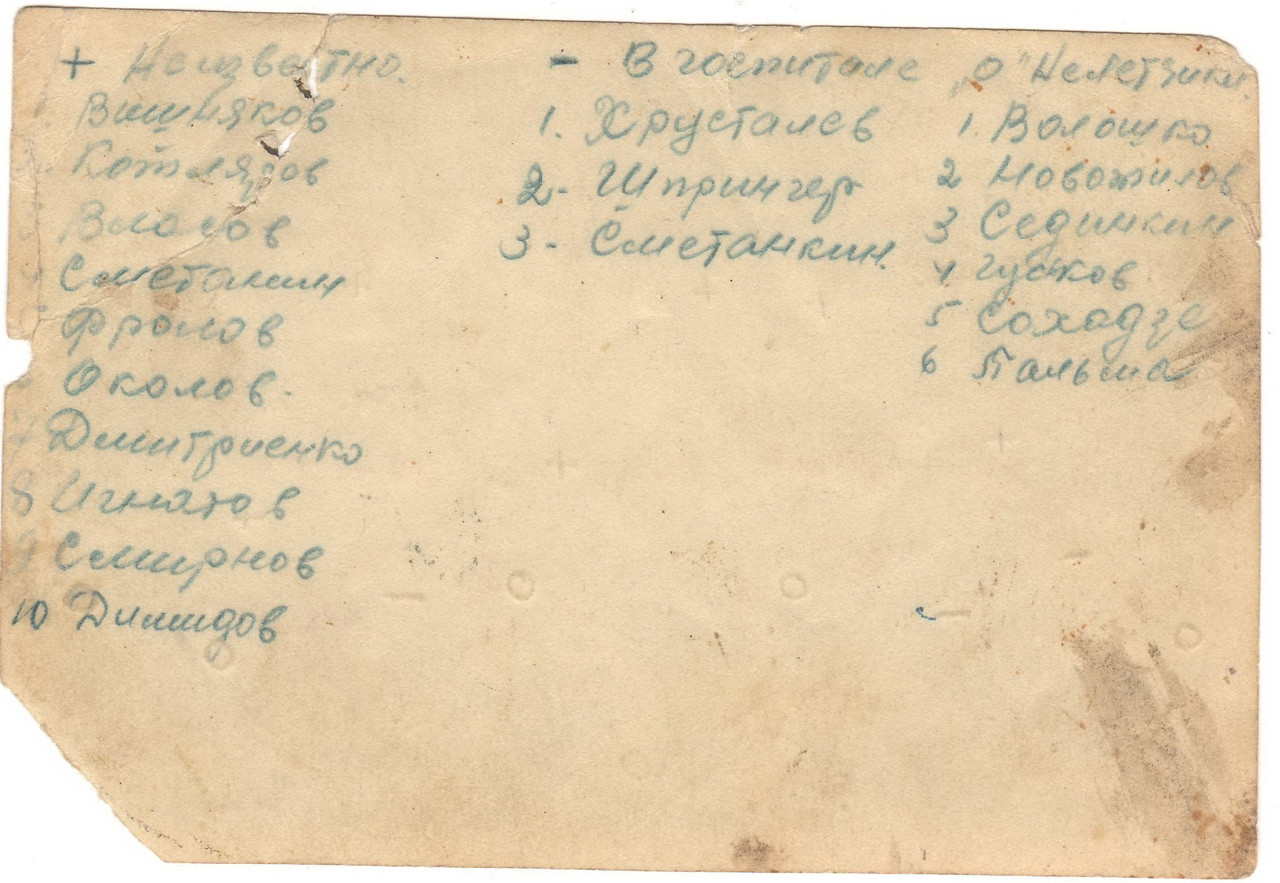 + Неизвестно.
Вишняков
Котляров
Власов
Сметанин
Фролов
Околов.
7 Дмитриенко
8 Игнатов
9 Смирнов
10 Димидов
- В госпитале
1. Хрусталев
2- Шпрингер
3- Сметанкин.
"О" Нелетчики.
1. Волошко
2 Новожилов
3 Сединкин
4 Гусков
5 Сохадзе
6 Пальма